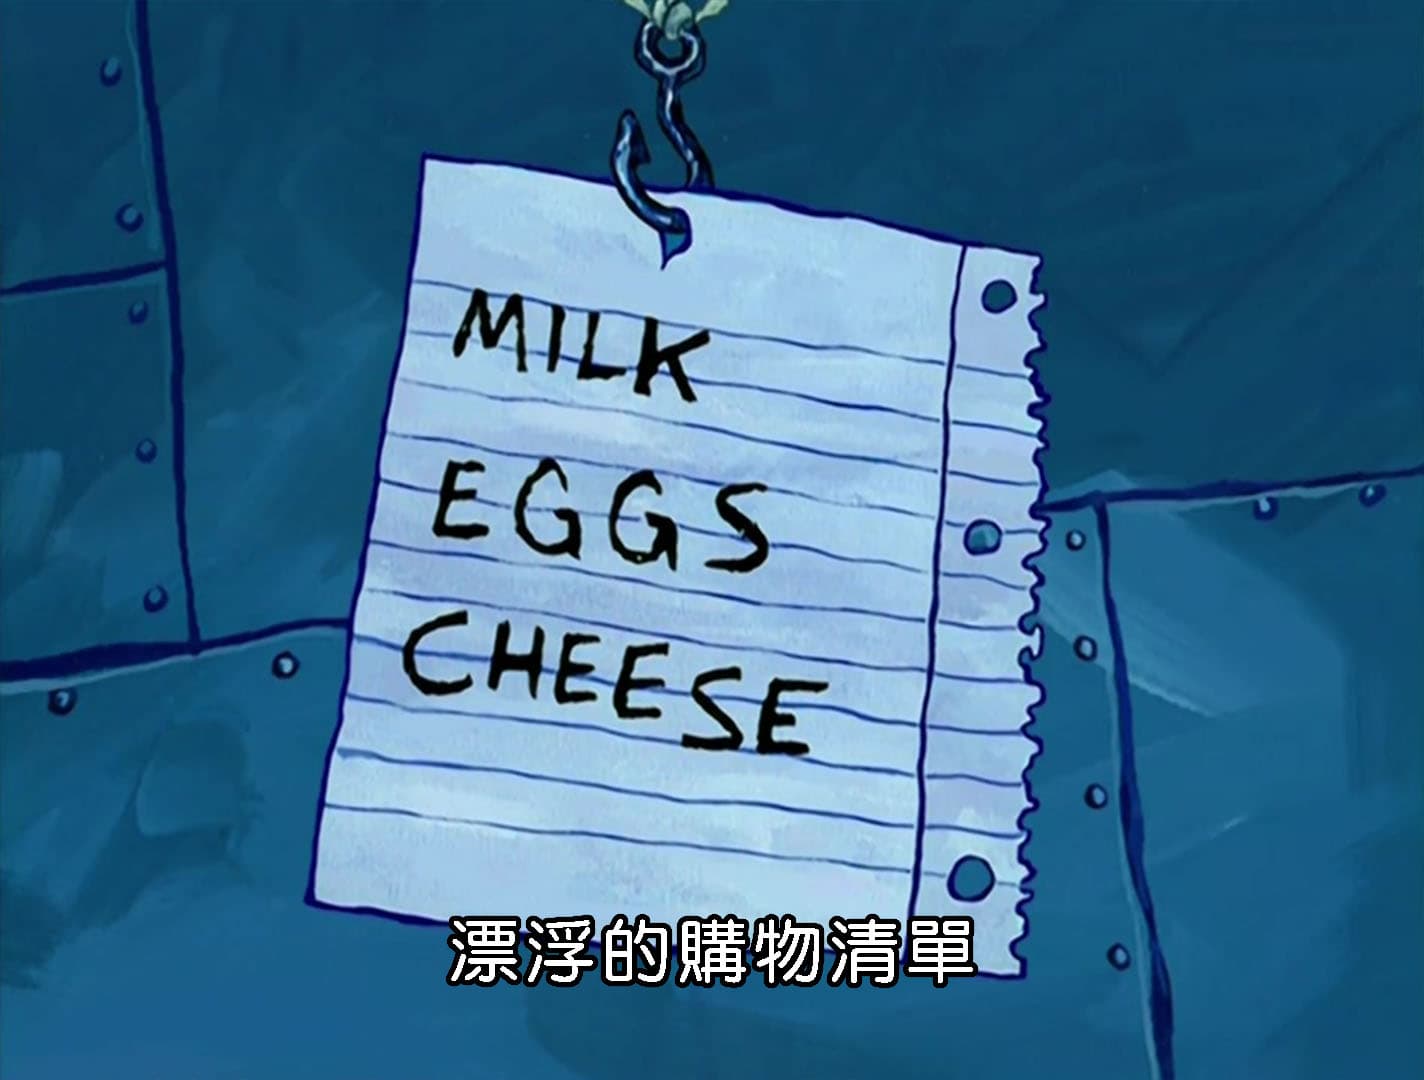 MILK
EGGS
CHEESE
漂浮的購物清單